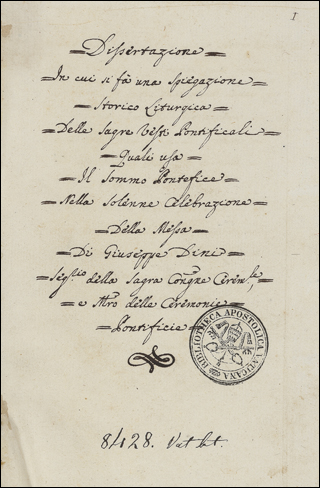 1
Dissertazione
In cui si fà una Spiegazione
Storico Liturgica
Delle Sagre Vesti Pontificali
Quali usa
Il Sommo Pontefice
Nella Solenne Celebrazione
Della Messa
Di Giuseppe Dini
Seg.rio della Sagra Congne Cerem.le
e Mro delle Ceremonie
Pontificie
BIBLIOTHECA APOSTOLICA VATICANA
8428. Vat. lat.